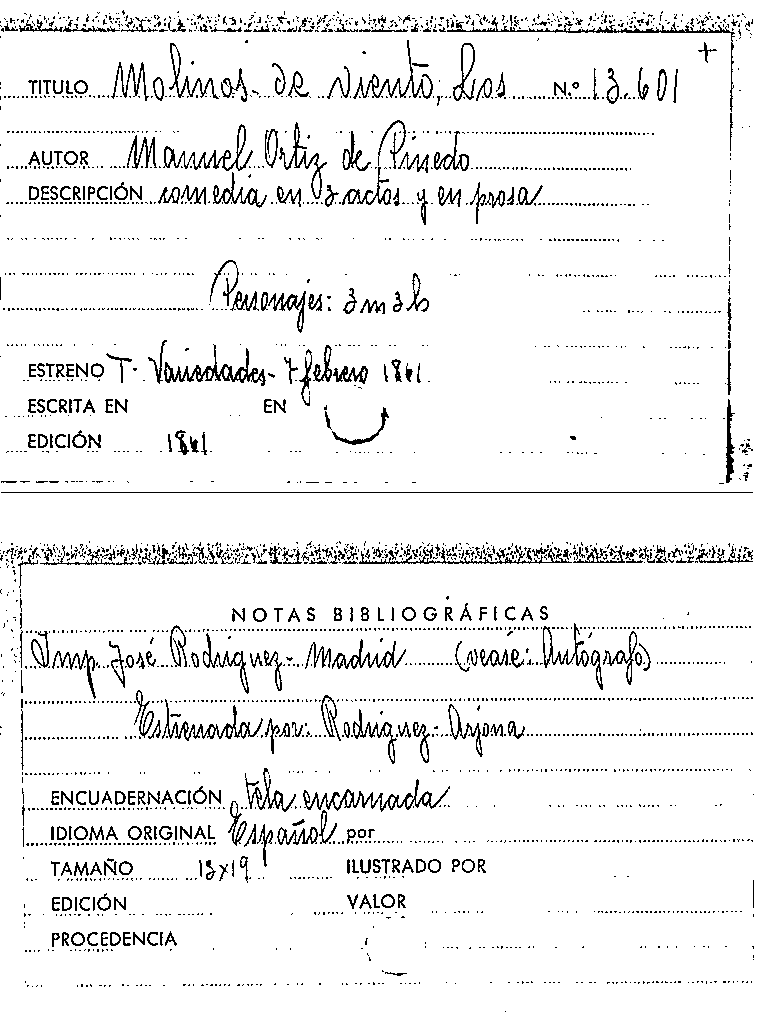 +
TITULO Molinos de viento, Los N.º 13.601
AUTOR Manuel Ortiz de Pinedo
DESCRIPCIÓN comedia en 3 actos y en prosa
Personajes: 3 m 3 h
ESTRENO T. Variedades - 7 febrero 1861
ESCRITA EN EN
EDICIÓN 1861
NOTAS BIBLIOGRÁFICAS
Imp. José Rodriguez - Madrid (vease: Autógrafo)
Estrenada por: Rodriguez - Arjona
ENCUADERNACIÓN tela encarnada
IDIOMA ORIGINAL Español por
TAMAÑO 13x19 ILUSTRADO POR
EDICIÓN VALOR
PROCEDENCIA